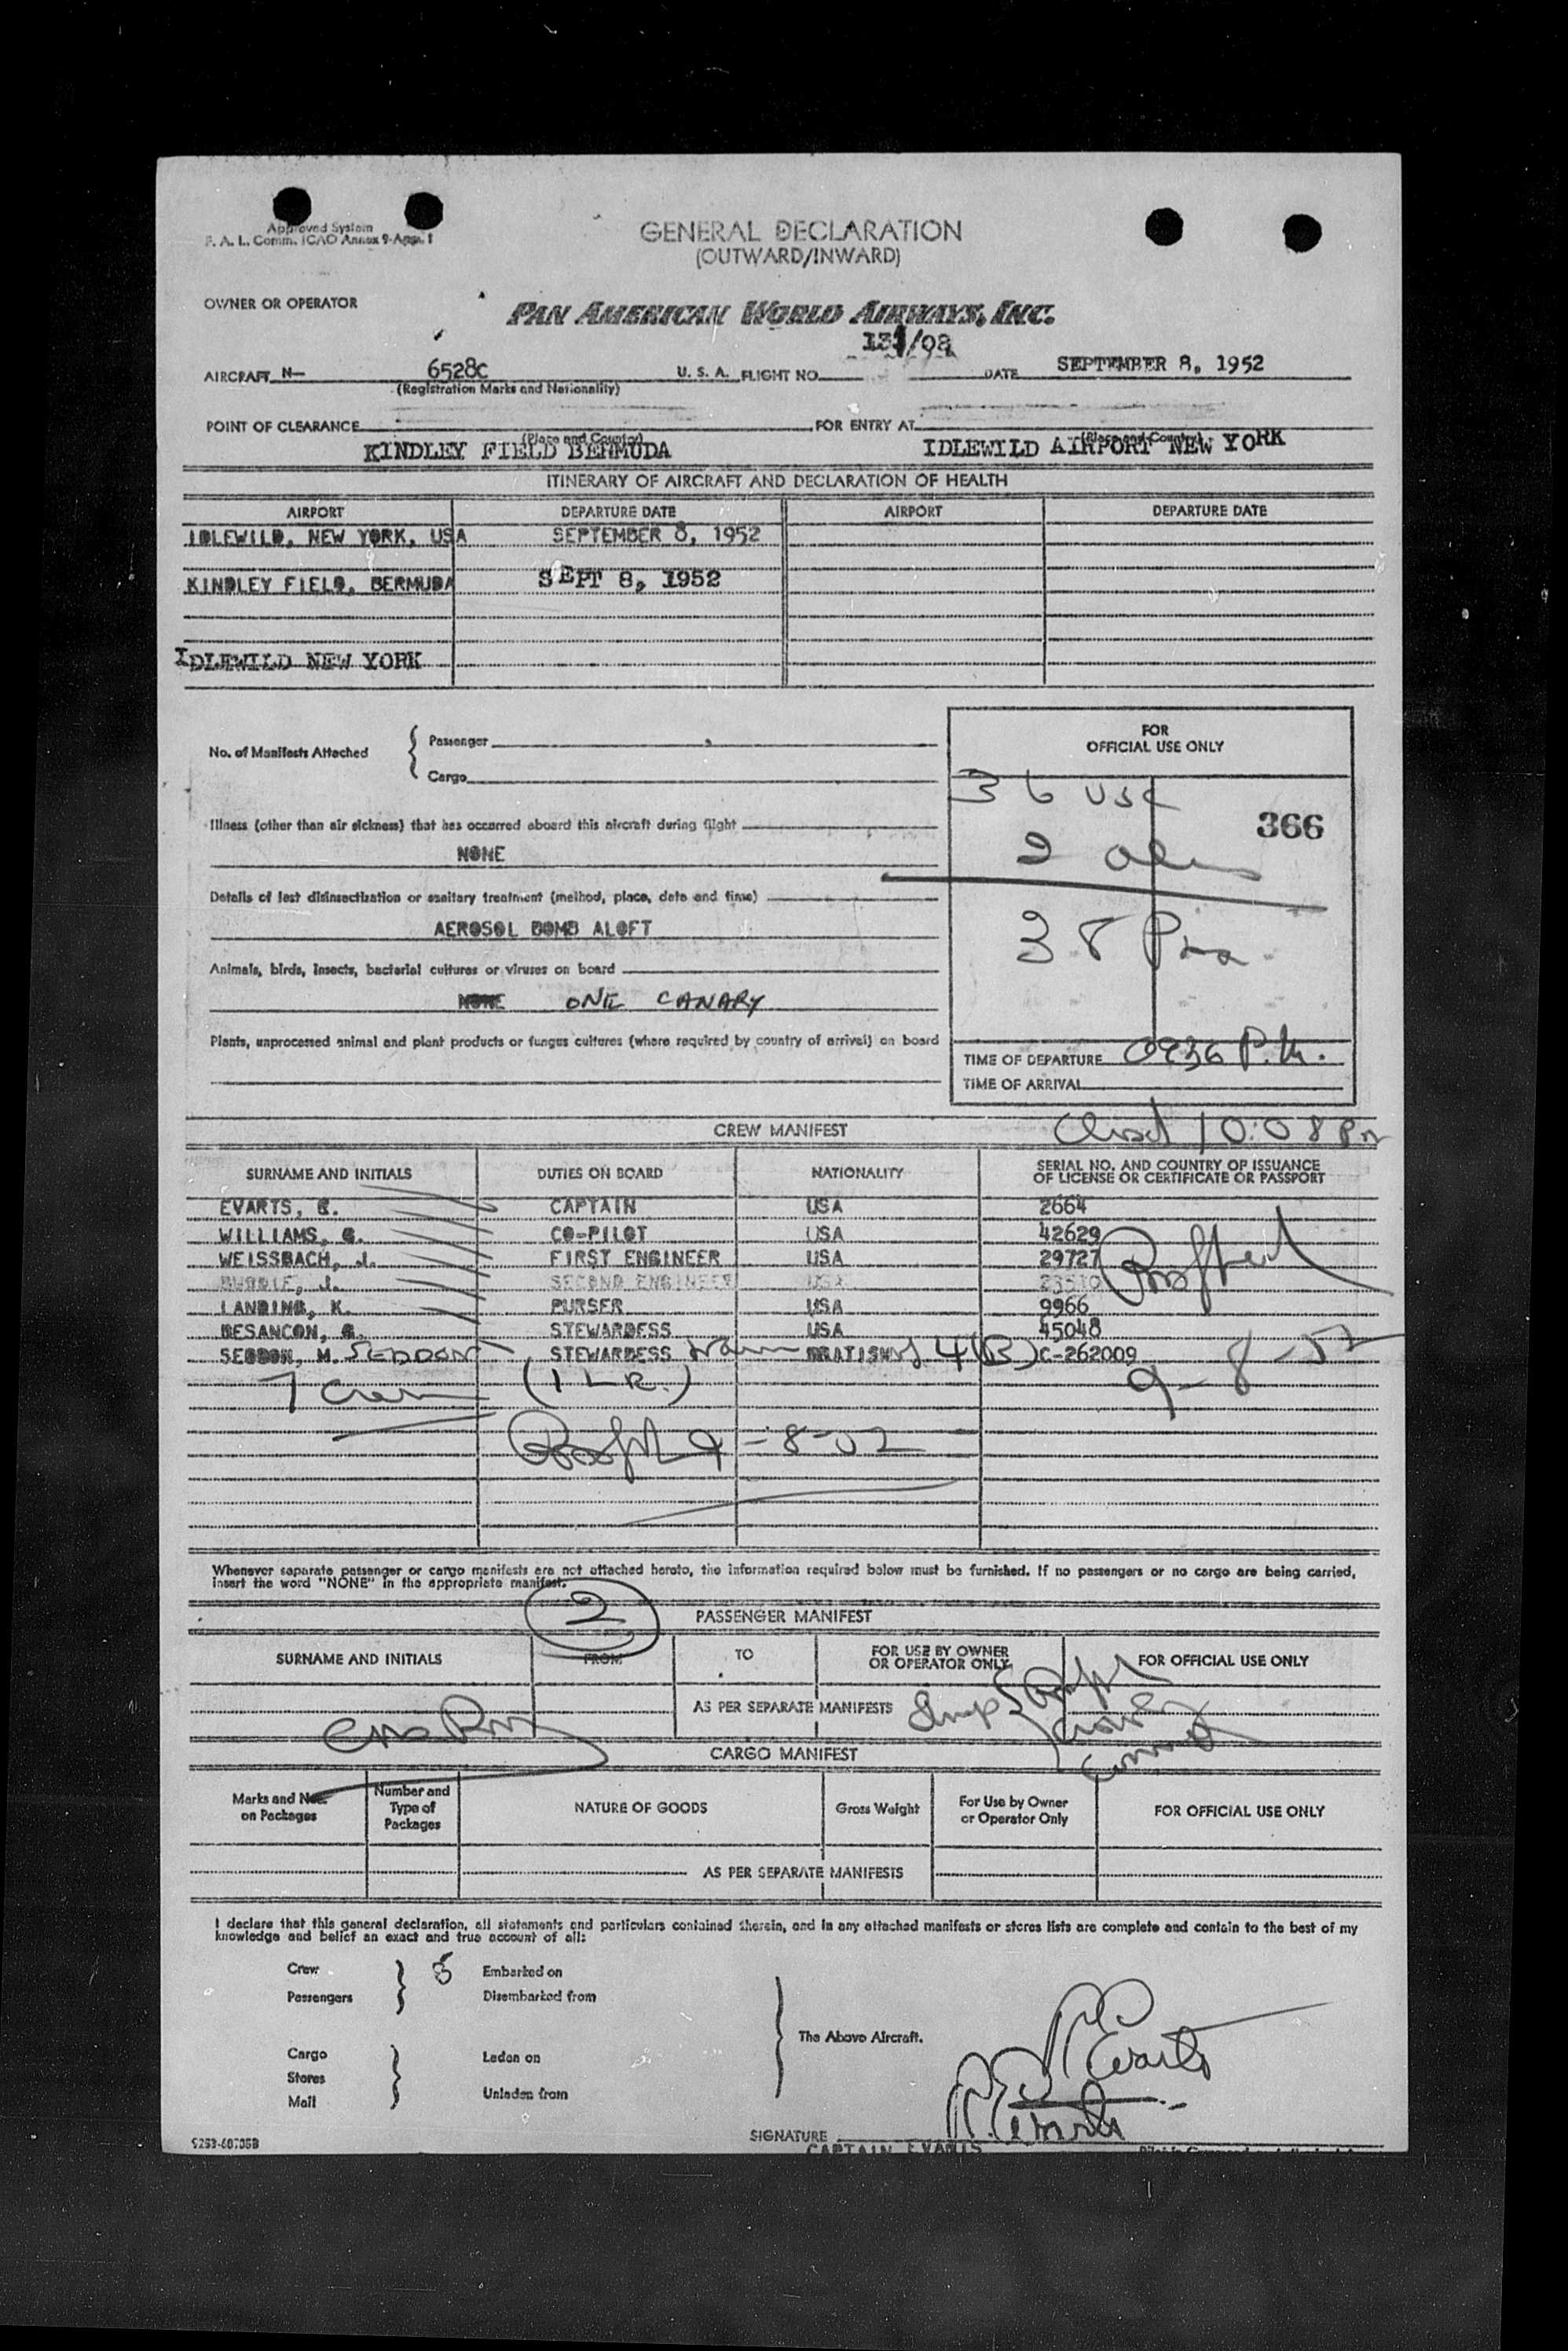 Approved System
F. A. L. Comm. ICAO Annex 9-App. 1
GENERAL DECLARATION
(OUTWARD/INWARD)
OWNER OR OPERATOR
PAN AMERICAN WORLD AIRWAYS, INC.
AIRCRAFT N— 6528C U. S. A. FLIGHT NO. /08 DATE SEPTEMBER 8, 1952
(Registration Marks and Nationality)
POINT OF CLEARANCE FOR ENTRY AT
(Place and Country) (Place and Country)
KINDLEY FIELD BERMUDA IDLEWILD AIRPORT NEW YORK
ITINERARY OF AIRCRAFT AND DECLARATION OF HEALTH
AIRPORT DEPARTURE DATE AIRPORT DEPARTURE DATE
IDLEWILD, NEW YORK, USA SEPTEMBER 8, 1952
KINDLEY FIELD, BERMUDA SEPT 8, 1952
IDLEWILD NEW YORK
No. of Manifests Attached { Passenger
Cargo
FOR
OFFICIAL USE ONLY
36 USC
366
2
38
Illness (other than air sickness) that has occurred aboard this aircraft during flight
NONE
Details of last disinsectization or sanitary treatment (method, place, date and time)
AEROSOL BOMB ALOFT
Animals, birds, insects, bacterial cultures or viruses on board
NONE ONE CANARY
Plants, unprocessed animal and plant products or fungus cultures (where required by country of arrival) on board
TIME OF DEPARTURE P.M.
TIME OF ARRIVAL
Closed 10:08 Pm
CREW MANIFEST
SURNAME AND INITIALS DUTIES ON BOARD NATIONALITY SERIAL NO. AND COUNTRY OF ISSUANCE
OF LICENSE OR CERTIFICATE OR PASSPORT
EVARTS, CAPTAIN USA 2664
WILLIAMS, G. CO-PILOT USA 42629
WEISSBACH, J. FIRST ENGINEER USA 29727
J. SECOND ENGINEER USA
LANDING, K. PURSER USA 9966
BESANCON, G. STEWARDESS USA 45048
SEDDON, M. SEDDON STEWARDESS BRATISH C-262009
7 Crew (1 L.R.) 9-8-52
9-8-52
Whenever separate passenger or cargo manifests are not attached hereto, the information required below must be furnished. If no passengers or no cargo are being carried,
insert the word "NONE" in the appropriate manifest.
2
PASSENGER MANIFEST
SURNAME AND INITIALS FROM TO FOR USE BY OWNER
OR OPERATOR ONLY FOR OFFICIAL USE ONLY
AS PER SEPARATE MANIFESTS
CARGO MANIFEST
Marks and Nos.
on Packages Number and
Type of
Packages NATURE OF GOODS Gross Weight For Use by Owner
or Operator Only FOR OFFICIAL USE ONLY
AS PER SEPARATE MANIFESTS
I declare that this general declaration, all statements and particulars contained therein, and in any attached manifests or stores lists are complete and contain to the best of my
knowledge and belief an exact and true account of all:
Crew Embarked on
Passengers Disembarked from
The Above Aircraft.
Cargo Laden on
Stores
Mail Unladen from
R Evarts
R Evarts
SIGNATURE
CAPTAIN EVARTS